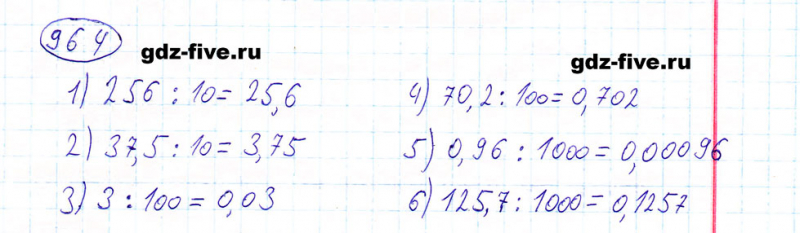 964
gdz-five.ru
gdz-five.ru
1) 256 : 10 = 25,6
2) 37,5 : 10 = 3,75
3) 3 : 100 = 0,03
4) 70,2 : 100 = 0,702
5) 0,96 : 1000 = 0,00096
6) 125,7 : 1000 = 0,1257